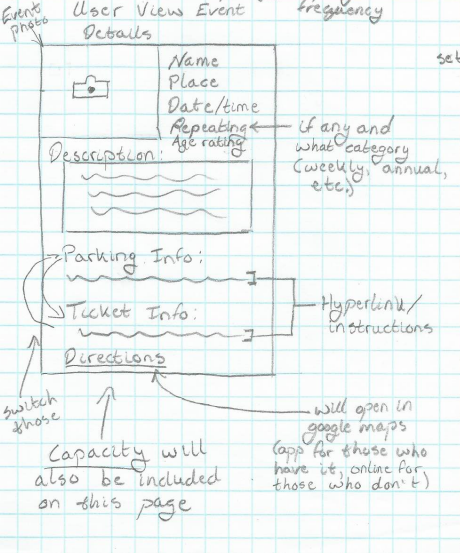 Event
photo
User View Event
Details
frequency
set
Name
Place
Date/time
Repeating
Age rating
if any and
what category
(weekly, annual,
etc.)
Description:
Parking Info:
Ticket Info:
Hyperlink/
instructions
Directions
switch
those
will open in
google maps
(app for those who
have it, online for
those who don't)
Capacity will
also be included
on this page